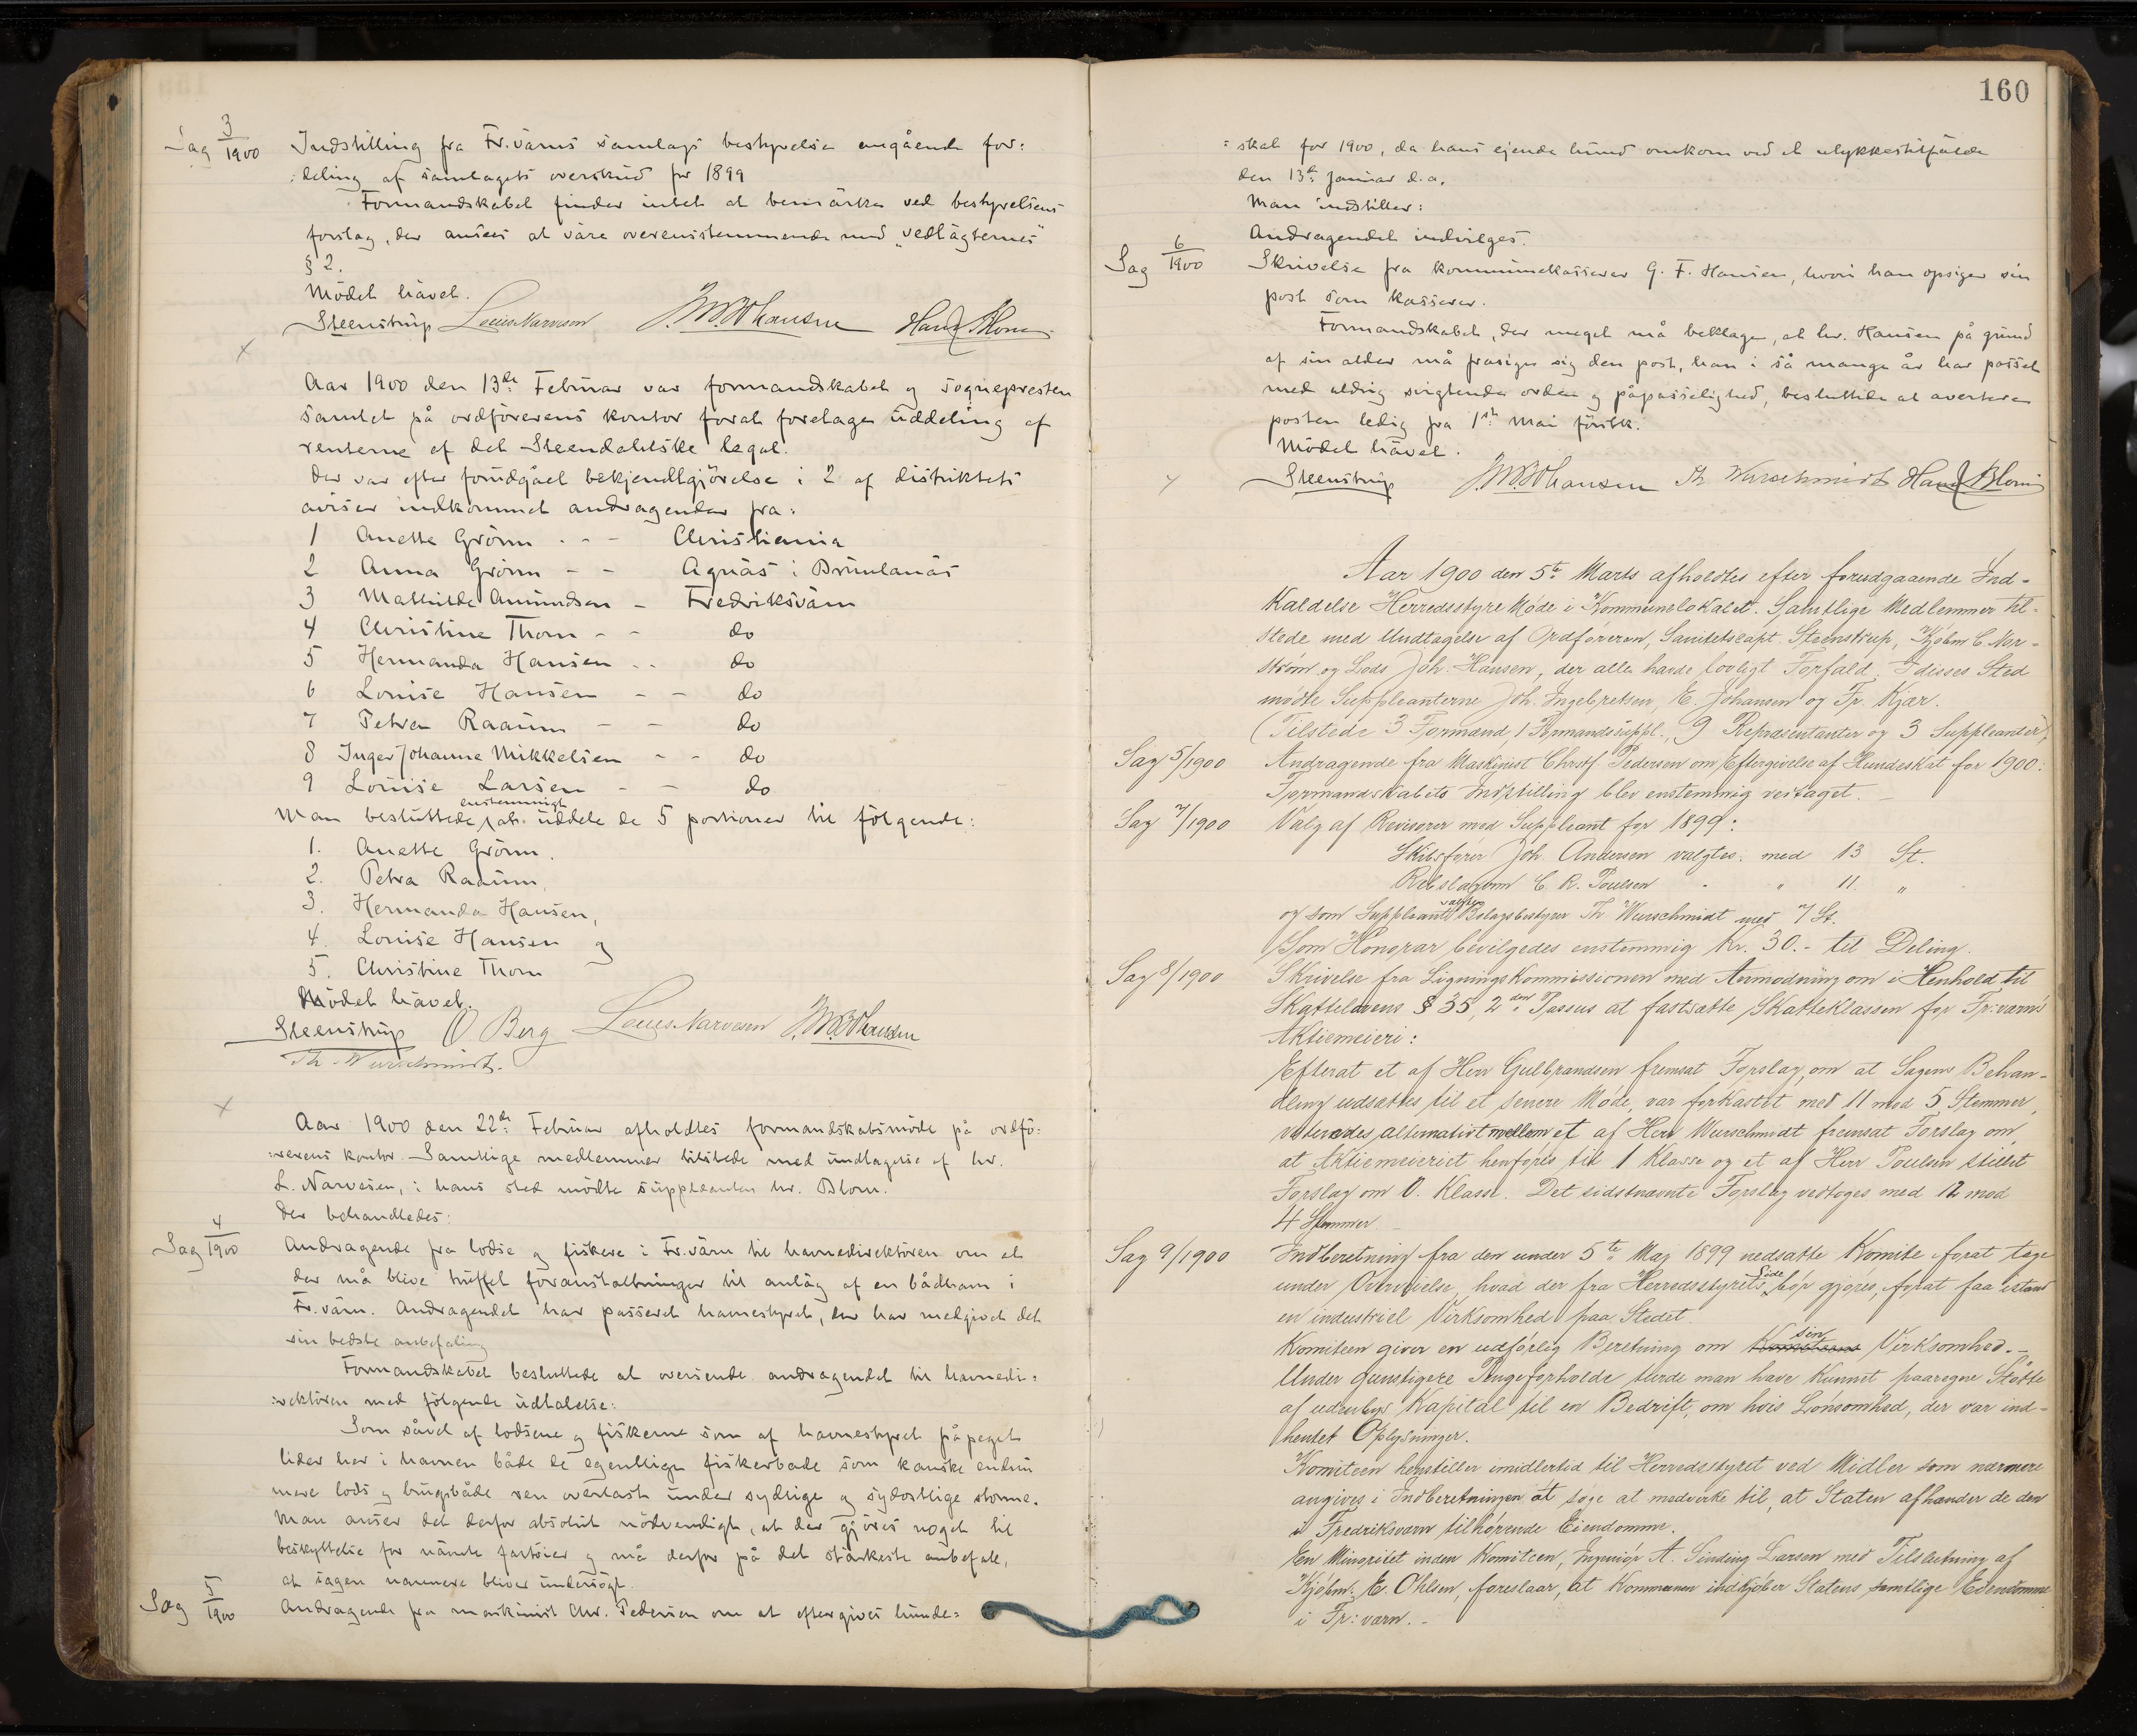 Sag 3/1900 Indstilling fra Fr.värns samlags bestyrelse angående for:
:deling af samlagets overskud for 1899
Formandskabet finder intet at bemärke ved bestyrelsens
forslag, der ansees at väre overensstemmende med „vedtägternes"
§ 2.
Mödet hävet.
Steenstrup Louis Narvesen J.M.B.Johansen Hans Blom
Aar 1900 den 13de Februar var formandskabet og sognepresten
samlet på ordförerens kontor forat foretage uddeling af
renterne af det Steendahlske legat.
Der var efter forudgået bekjendtgjörelse i 2 af distriktets
aviser indkommet andragender fra:
1 Anette Grönn - - - Christiania
2 Anna Grönn - - Agnäs i Brunlanäs
3 Mathilde Amundsen - Fredriksvärn
4 Christine Thorn - - do
5 Hermanda Hansen - - do
6 Louise Hansen - - do
7 Petra Raaum - - do
8 Inger Johanne Mikkelsen - - do
9 Louise Larsen - - do
Man besluttede enstemmigt at uddele de 5 portioner til fölgende:
1. Anette Grönn.
2. Petra Raaum,
3. Hermanda Hansen,
4. Louise Hansen og
5. Christine Thorn
Mödet hävet.
Steenstrup O Berg Louis Narvesen J.M.B.Johansen
Th. Wurschmidt.
Aar 1900 den 22de Februar afholdtes formandskabsmöde på ordfö:
:rerens kontor. Samtlige medlemmer tilstede med undtagelse af hr.
L. Narvesen, i hans sted mödte suppleanten hr. Blom.
Der behandledes:
Sag 4/1900 Andragende fra lodse og fiskere i Fr.värn til havnedirektören om at
der må blive truffet foranstaltninger til anläg af en bådhavn i
Fr.värn. Andragendet har passeret havnestyret, der har medgivet det
sin bedste anbefaling
Formandskabet besluttede at oversende andragendet til havnedi:
:rektören med fölgende udtalelse:
Som såvel af lodsene og fiskerne som af havnestyret påpeget
lider her i havnen både de egentlige fiskerbåde som kanske endnu
mere lods og brugsbåde ren overlast under sydlige og sydostlige storme.
Man anser det derfor absolut nödvendigt, at der gjöres noget til
beskyttelse for nämte fartöier og må derfor på det stärkeste anbefale,
at sagen nærmere bliver undersögt.
Sag 5/1900 Andragende fra maskinist Chr. Pedersen om at eftergives hunde:
160
:skat for 1900, da hans ejende hund omkom ved et ulykkestilfälde
den 13de Januar d.a.
Man indstiller:
Andragendet indvilges.
Sag 6/1900 Skrivelse fra kommunekasserer G. F. Hansen, hvori han opsiger sin
post som kasserer.
Formandskabet, der meget må beklage, at hr. Hansen på grund
af sin alder må frasige sig den post, han i så mange år har passet
med aldrig svigtende orden og påpasselighed, besluttede at avertere
posten ledig fra 1ste Mai förstk.
Mödet hävet.
Steenstrup J.M.B.Johansen Th Wurschmidt Hans Blom
Aar 1900 den 5te Marts afholdtes efter forudgaaende Ind-
kaldelse Herredsstyre Möde i Kommunelokalet. Samtlige Medlemmer til-
stede med Undtagelse af Ordföreren, Sanitetscapt. Steenstrup, Kjøbm C. Mar-
ström og Lods Joh. Hansen, der alle havde lovligt Forfald. I disses Sted
mödte Suppleanterne Joh. Ingebretsen, E. Johansen og Fr. Kjær.
(Tilstede 3 Formænd, 1 Formandssuppl., 9 Repræsentanter og 3 Suppleanter).
Sag 5/1900 Andragende fra Maskinist Christf. Pedersen om Eftergivelse af Hundeskat for 1900:
Formandskabets Indstilling blev enstemmig vedtaget.
Sag 7/1900 Valg af Revisorer med Suppleant for 1899:
Skibsförer Joh. Andersen valgtes med 13 St.
Rebslagerm C. R. Poulsen " " 11 "
og som Suppleant valgtes Bolagsbestyrer Th. Wurschmidt med 7 St.
Som Honorar bevilgedes enstemmig Kr. 30.- til Deling.
Sag 8/1900 Skrivelse fra Ligningskommissionen med Anmodning om i Henhold til
Skattelovens § 35, 2den Passus at fastsætte Skatteklassen for Fr:værns
Aktiemeieri:
Efterat et af Herr Gulbrandsen fremsat Forslag, om at Sagens Behan-
dling udsættes til et senere Möde, var forkastet med 11 mod 5 Stemmer,
voteredes alternativt mellem et af Herr Wurschmidt fremsat Forslag om,
at Aktiemeieriet henføres til 1 Klasse og et af Herr Poulsen stillet
Forslag om 0. Klasse. Det sidstnævnte Forslag vedtoges med 12 mod
4 Stemmer.
Sag 9/1900 Indberetning fra den under 5te Maj 1899 nedsatte Komite forat tage
under Overveielse, hvad der fra Herredsstyrets Side bör gjøres, forat faa istand
en industriel Virksomhed paa Stedet.
Komiteen giver en udförlig Beretning om Komiteens sin Virksomhed.-
Under gunstigere Pengeforholde turde man have kunnet paaregne Støtte
af udenbys Kapital til en Bedrift, om hvis Lönsomhed, der var ind-
hentet Oplysninger.
Komiteen henstiller imidlertid til Herredsstyret ved Midler som nærmere
angives i Indberetningen at søge at medvirke til, at Staten afhænder de den
i Fredriksværn tilhørende Eiendomme.
En Minoritet inden Komiteen, Ingeniör A. Sinding Larsen med Tilslutning af
Kjöbm: E. Ohlsen, foreslaar, at Kommunen indkjøber Statens samtlige Eiendomme
i Fr:værn.-